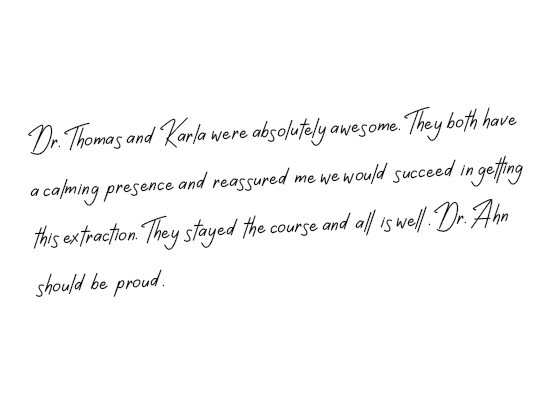 Dr. Thomas and Karla were absolutely awesome. They both have
a calming presence and reassured me we would succeed in getting
this extraction. They stayed the course and all is well. Dr. Ahn
should be proud.